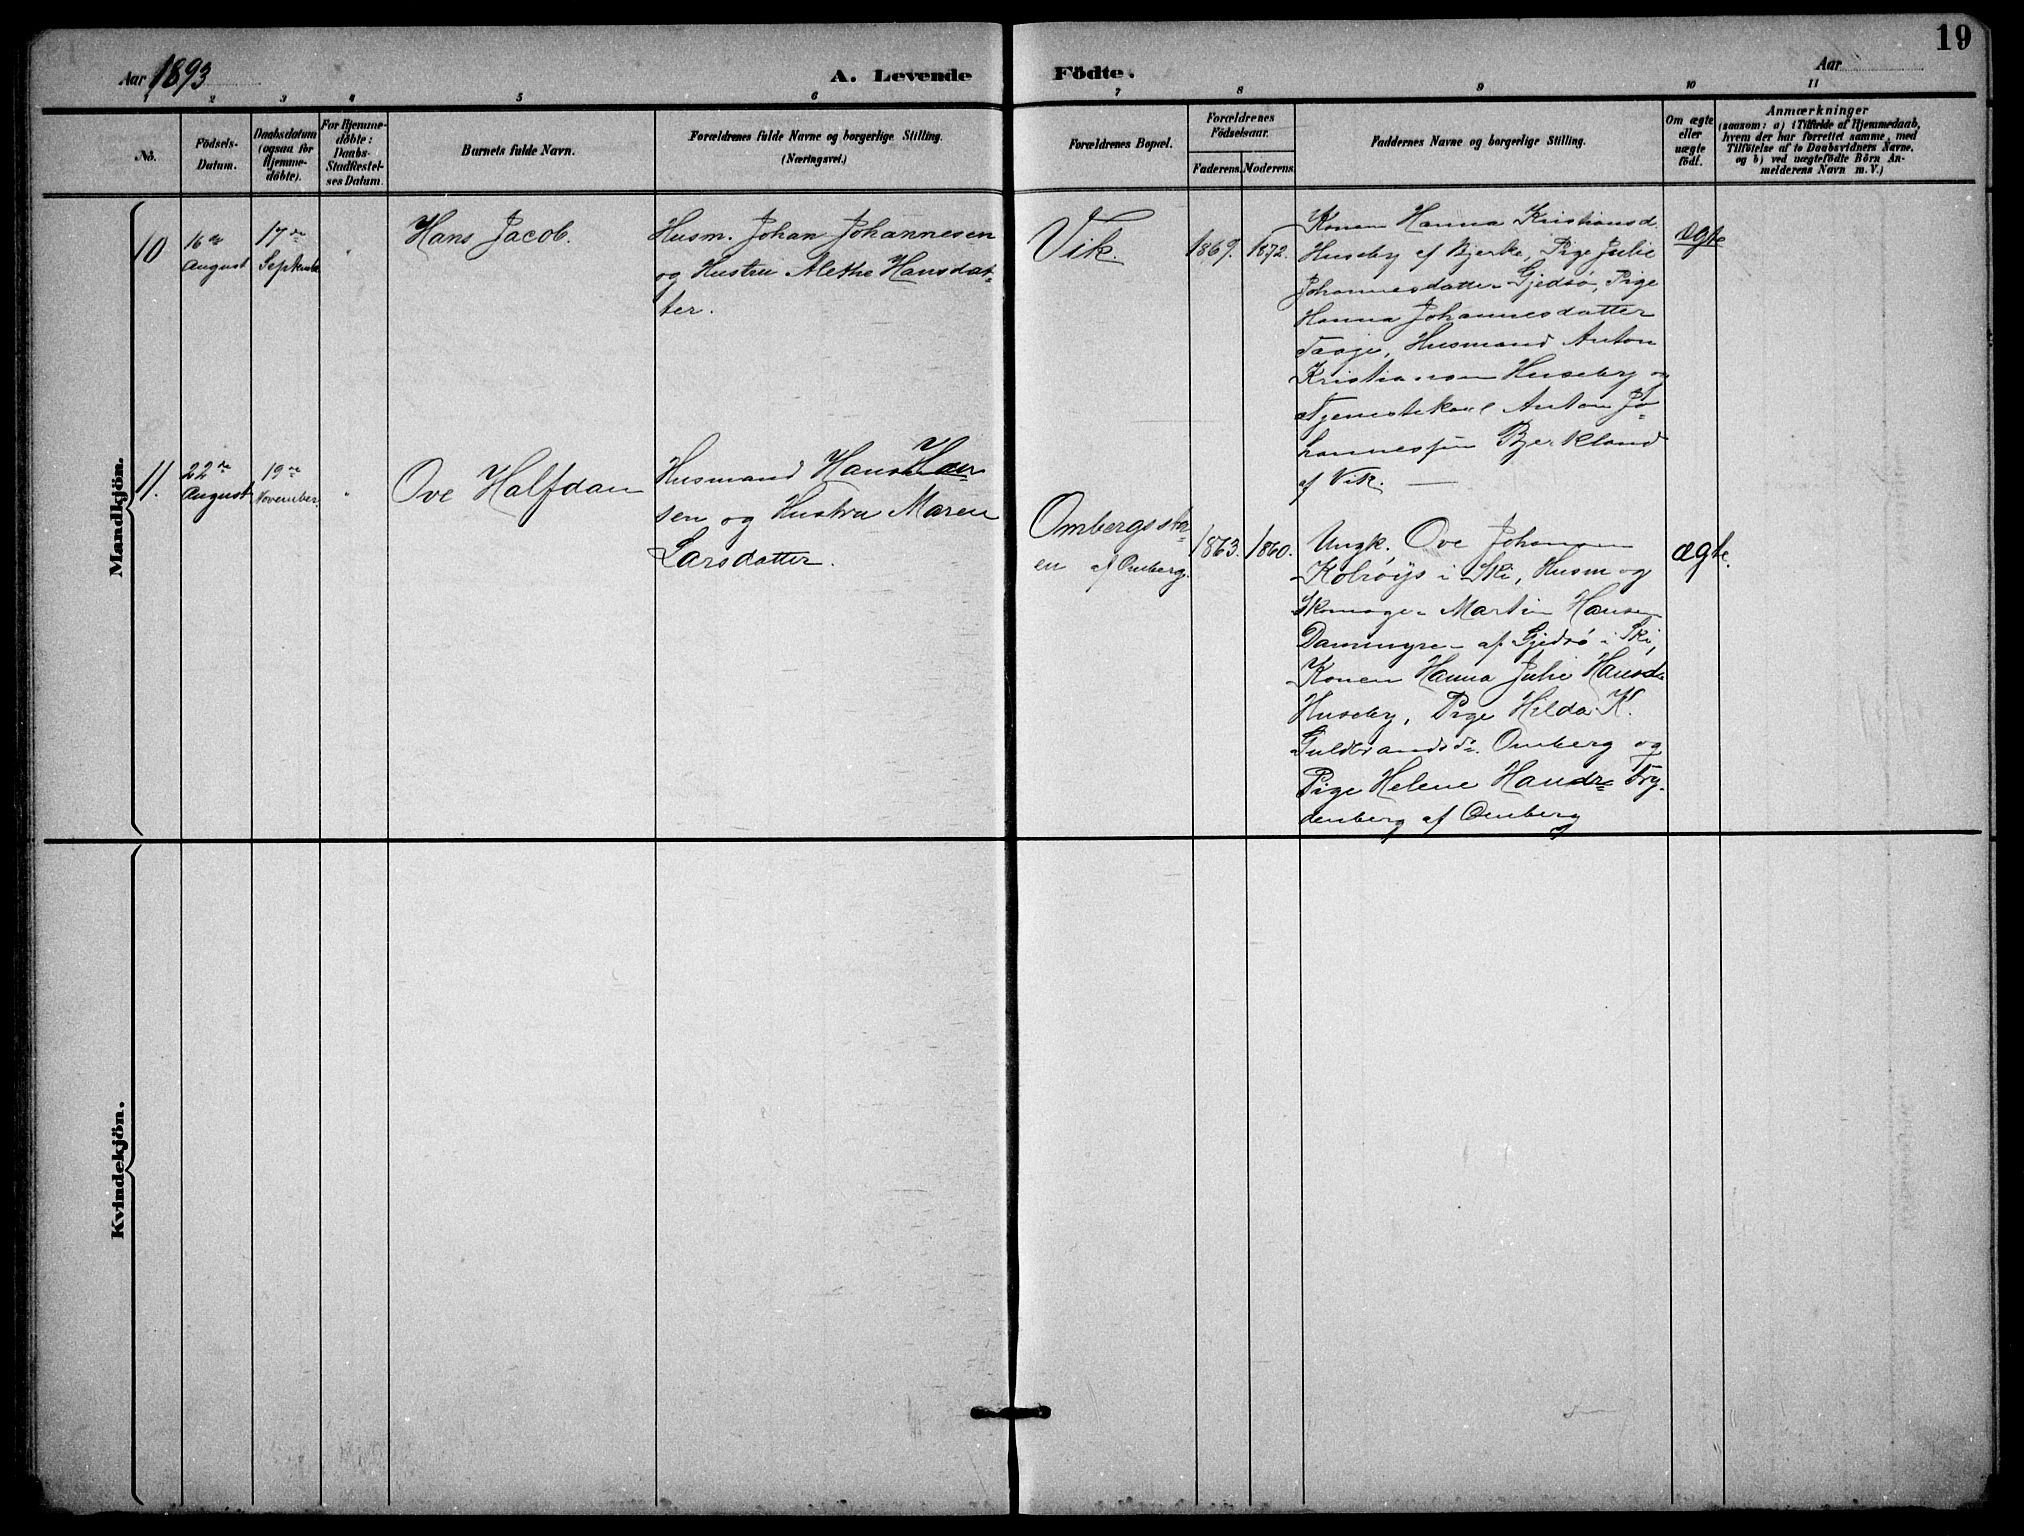 19
Aar 1893
A. Levende Födte.
Aar
1 2 3 4 5 6 7 8 9 10 11
No.
Födsels-
Datum.
Daabsdatum
(ogsaa for
Hjemme-
döbte).
For Hjemme-
döbte:
Daabs-
Stadfæstel-
ses Datum.
Barnets fulde Navn.
Forældrenes fulde Navne og borgerlige Stilling.
(Næringsvei.)
Forældrenes Bopæl.
Forældrenes
Födselsaar.
Faderens. Moderens.
Faddernes Navne og borgerlige Stilling.
Om ægte
eller
uægte
födt.
Anmærkninger
(saasom: a) i Tilfælde af Hjemmedaab,
hvem der har forrettet samme, med
Tilföielse af to Daabsvidners Navne,
og b) ved uægtefödte Börn An-
melderens Navn m. V.)
Mandkjön.
10
16de
August
17de
September
"
Hans Jacob.
Husm. Johan Johannesen
og Hustru Alethe Hansdat-
ter.
Vik.
1869.
1872.
Konen Hanna Kristiansd.
Huseby af Bjerke, Pige Julie
Johannesdatter Gjedsø, Pige
Hanna Johannesdatter
Taaje, Husmand Anton
Kristiansen Huseby og
Tjenestekarl Anton Jo-
hannessen Bjerkland
af Vik.
ægte
11.
22de
August
19de
November.
"
Ove Halfdan
Husmand Hans Han-
sen og Hustru Maren
Larsdatter.
Ombergsstu-
en af Omberg.
1863.
1860.
Ungk. Ove Johansen
i Ski, Husm og
Skomager Martin Hansen
Dammyren af Gjedsø i Ski,
Konen Hanna Julie Hansd.
Huseby, Pige Hilda K.
Guldbrandsdr. Omberg og
Pige Helene Hansdr Fry-
denberg af Omberg
ægte.
Kvindekjön.